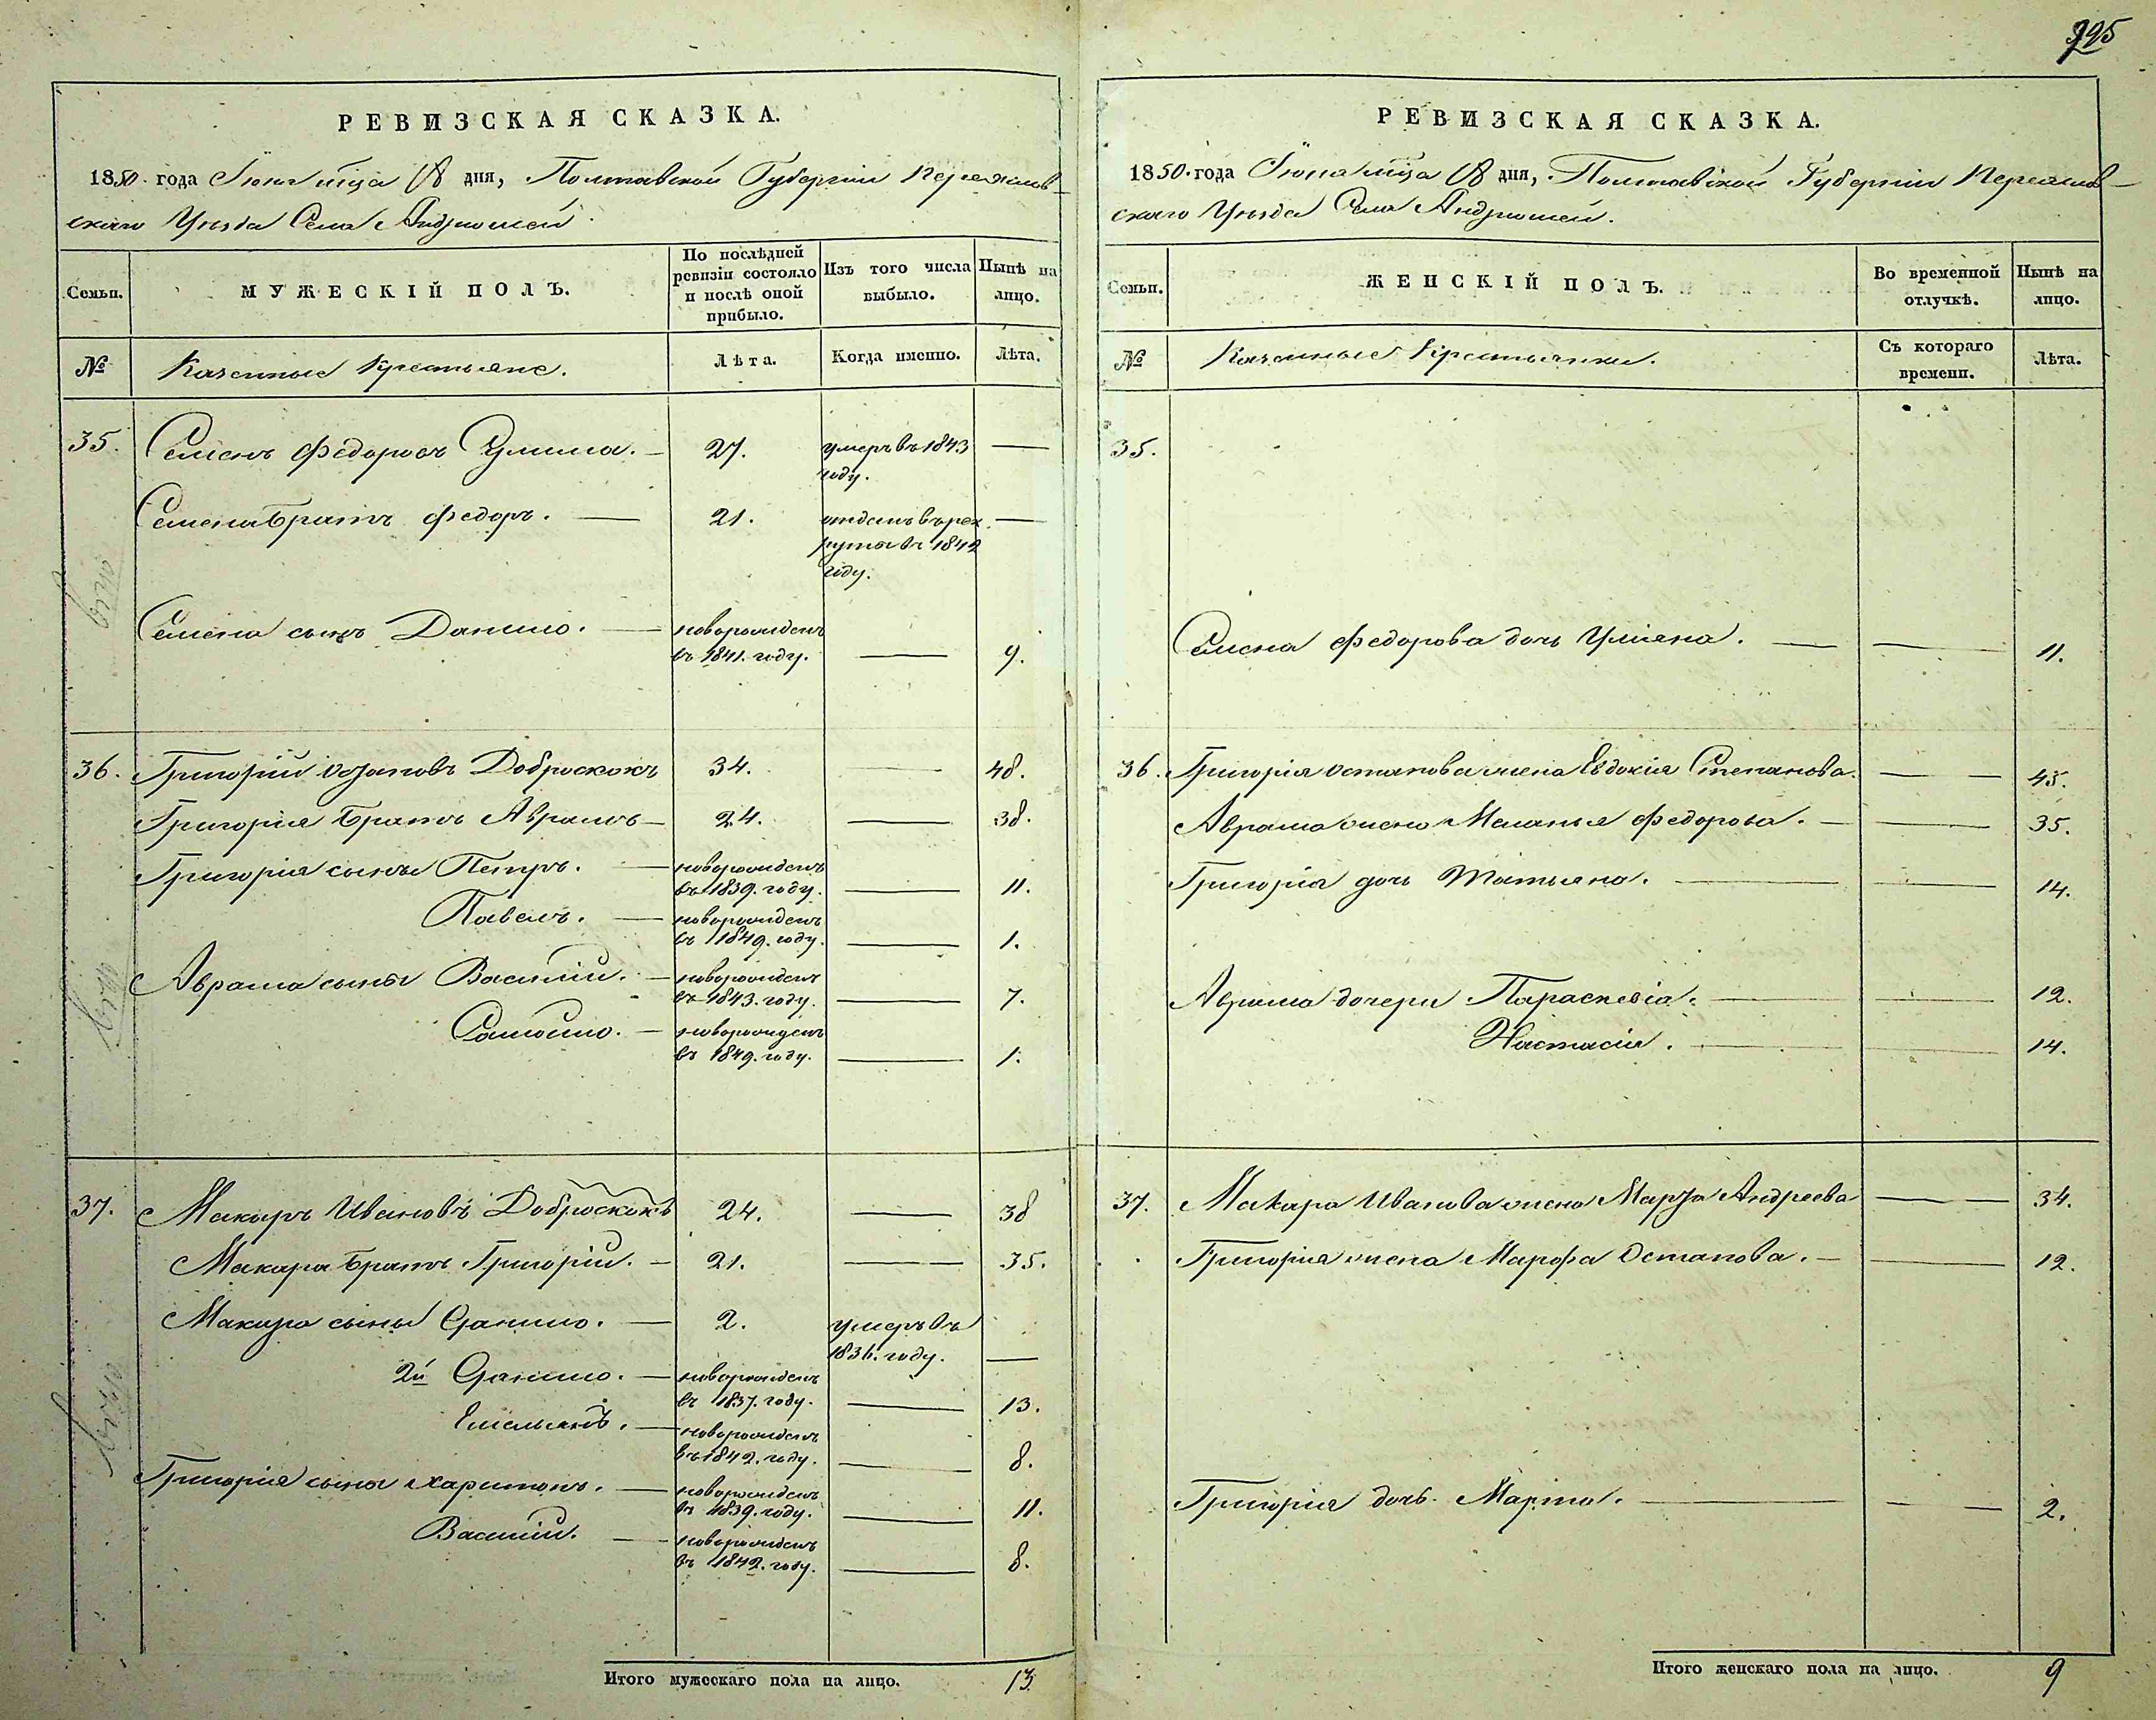 295
РЕВИЗСКАЯ СКАЗКА.
1850. года Іюня мца 18 дня, Полтавской Губерніи Переяслов
скаго Уѣзда Села Андрюшей.
Семьи.
МУЖЕСКІЙ ПОЛЪ.
По послѣдней ревизіи состояло и послѣ оной прибыло.
Изъ того числа выбыло.
Нынѣ на лицо.
№
Казенные Крестьяне.
Лѣта.
Когда именно.
Лѣта.
35. Семенъ Федоровъ 27. умеръ въ 1843 году. —
Семена братъ Федоръ. — 21. отданъ въ рек
руты въ 1842 году. —
Семена сынъ Данило. — новорожденъ
въ 1841. году. — 9.
36. Григорій Остаповъ Доброскокъ 34. — 48.
Григорія братъ Аврамъ — 24. — 38.
Григорія сыны Петръ. — новорожденъ
въ 1839. году. — 11.
Павелъ. — новорожденъ
въ 1849. году. — 1.
Аврама сыны Василій. — новорожденъ
въ 1843. году. — 7.
Самойло. — новорожденъ
въ 1849. году. — 1.
37. Макаръ Ивановъ Доброскокъ 24. — 38
Макара братъ Григорій. — 21. — 35.
Макара сыны Данило. — 2. умеръ въ
1836. году. —
2й Данило. — новорожденъ
въ 1837. году. — 13.
Емельянъ. — новорожденъ
въ 1842. году. — 8.
Григорія сыны Харитонъ. — новорожденъ
въ 1839. году. — 11.
Василій. — новорожденъ
въ 1842. году. — 8.
Итого мужескаго пола на лицо. 13.
РЕВИЗСКАЯ СКАЗКА.
1850. года Іюня мца 18 дня, Полтавской Губерніи Переяслов
скаго Уѣзда Села Андрюшей.
Семьи.
ЖЕНСКІЙ ПОЛЪ.
Во временной отлучкѣ.
Нынѣ на лицо.
№
Казенные Крестьянки.
Съ котораго времени.
Лѣта.
35.
Семена Федорова дочь Уліяна. — — 11.
36. Григорія Остапова жена Евдокія Степанова. — 45.
Аврама жена Меланья Федорова. — — 35.
Григорія дочь Татьяна. — — 14.
Аврама дочери Параскевія. — — 12.
Настасія. — — 14.
37. Макара Иванова жена Марфа Андреева — 34.
Григорія жена Марфа Остапова. — — 12.
Григорія дочь Марта. — — 2.
Итого женскаго пола на лицо. 9